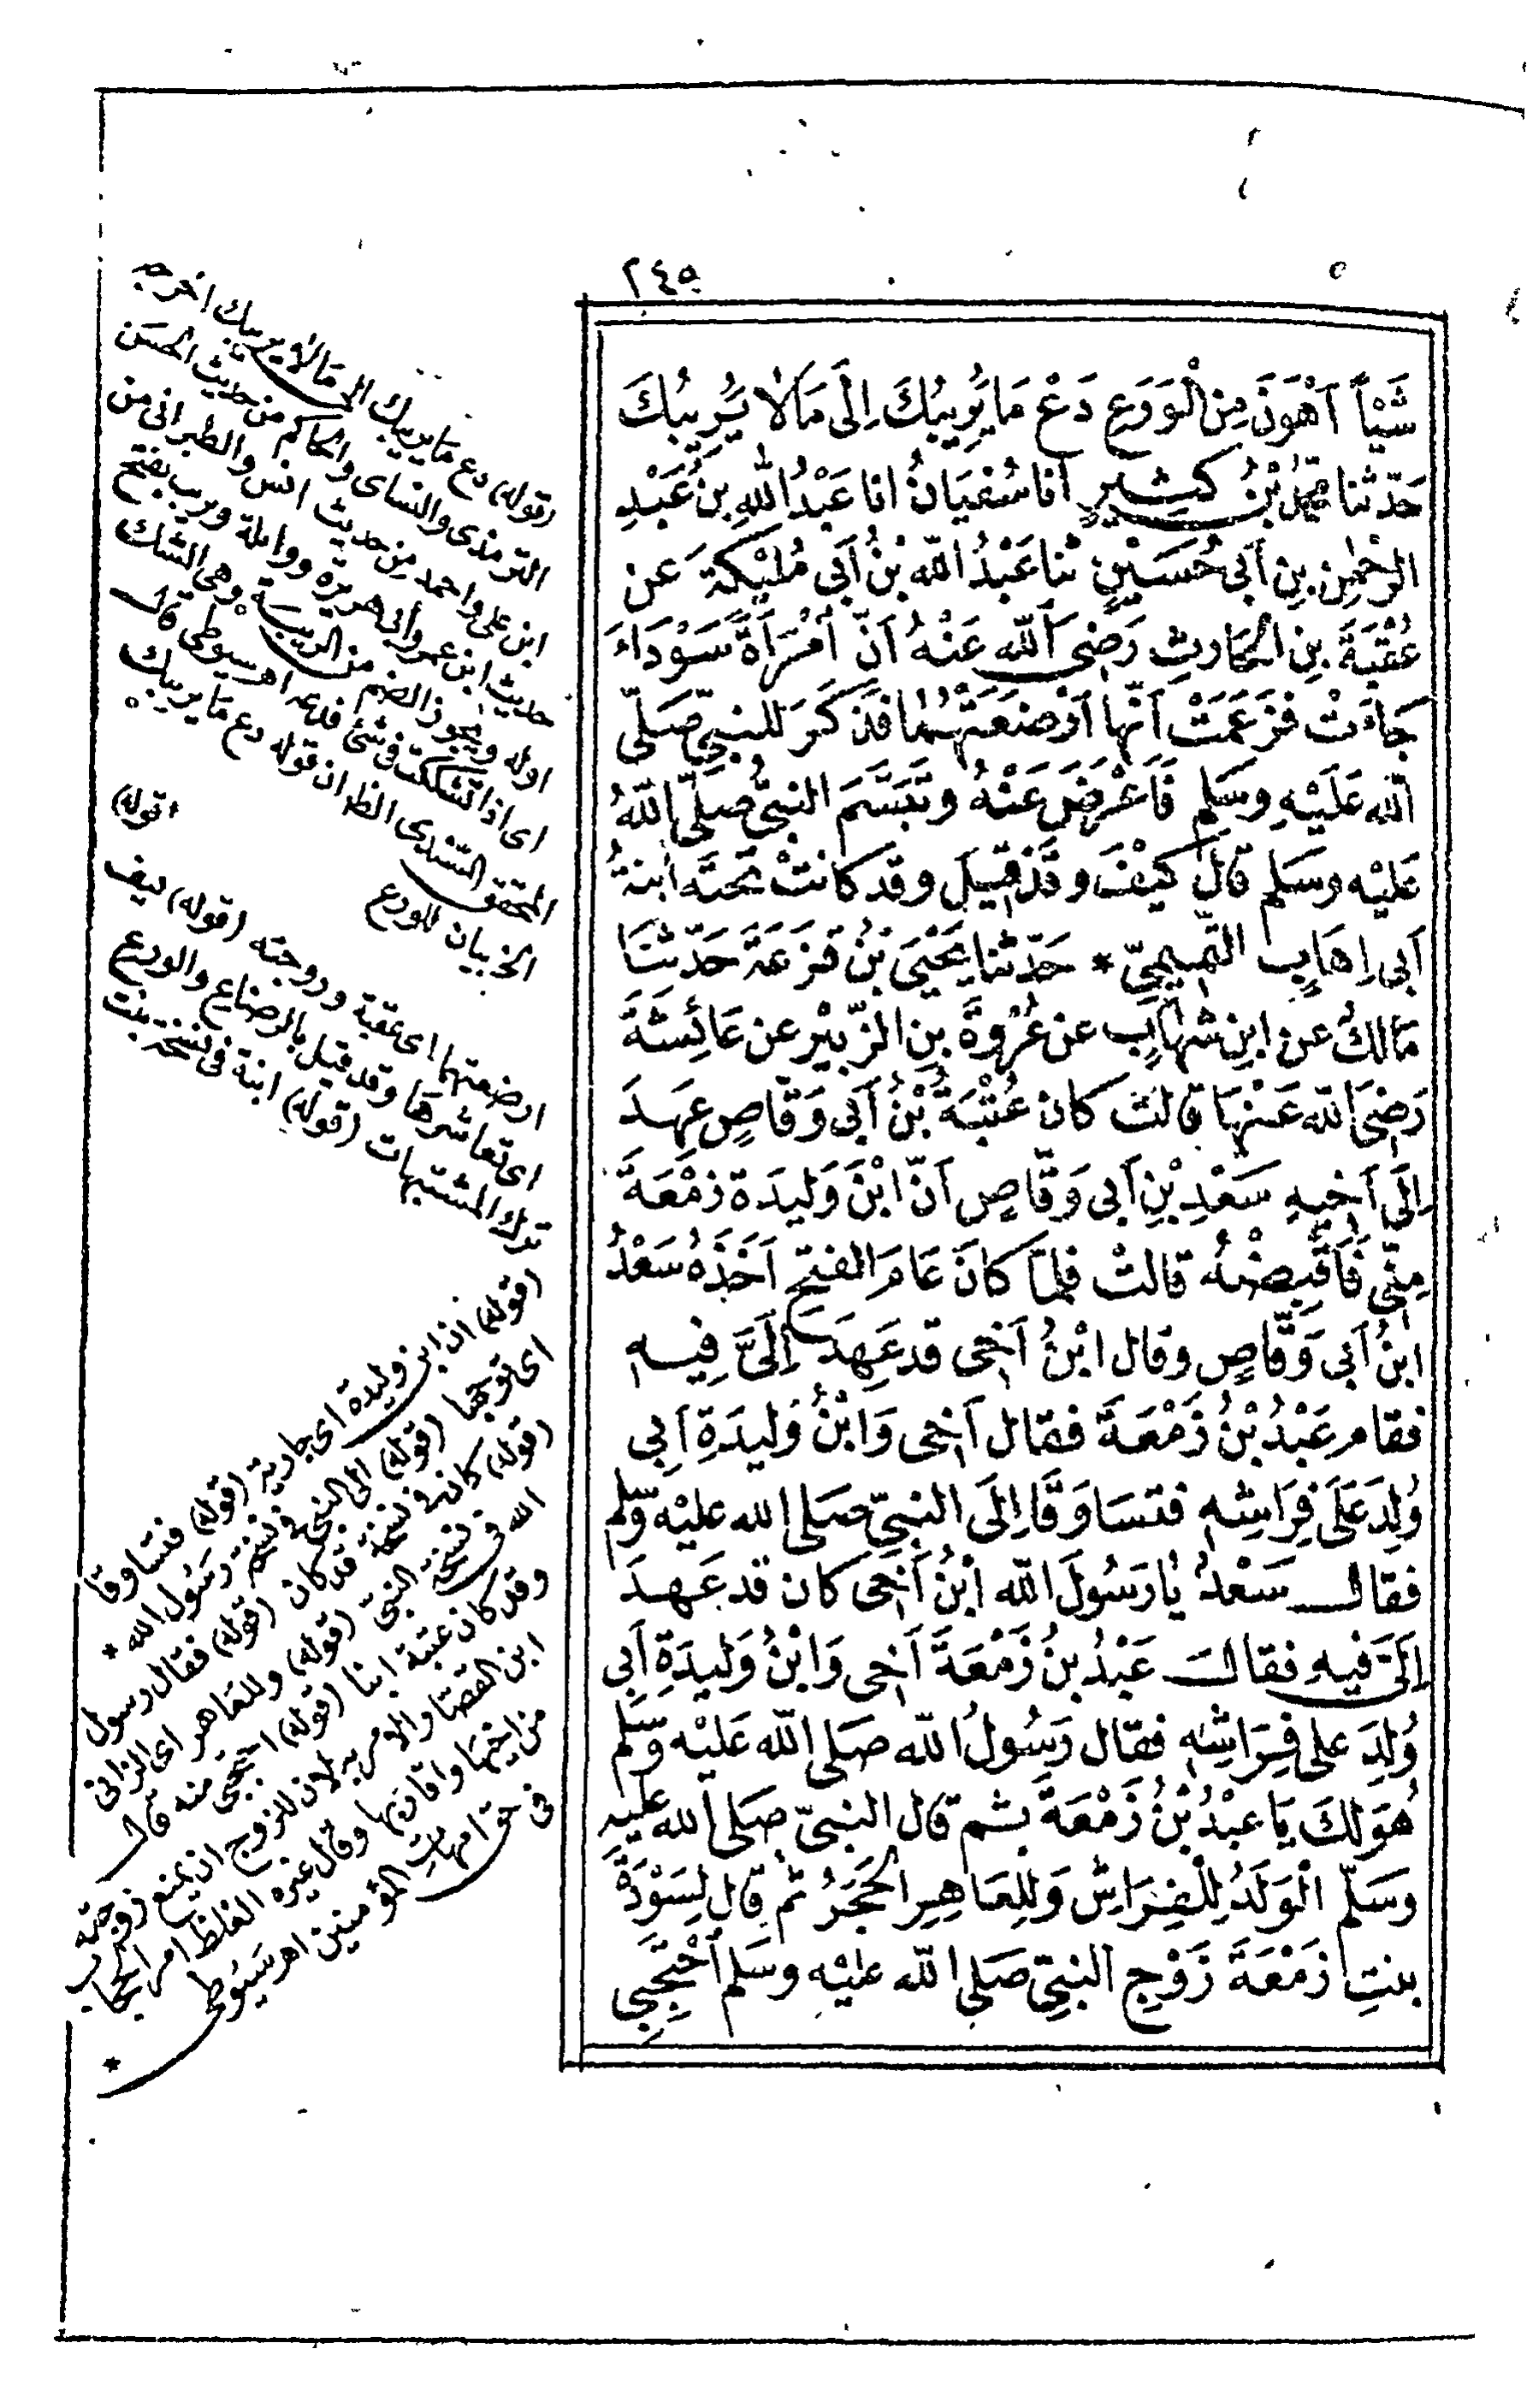 ٢٤٥
شَيْأً اَهْوَنَ مِنْ الْوَرَعِ دَعْ مَا يَرِيبُكَ اِلَى مَا لَا يَرِيبُكَ
حَدّثنا محمَّدُ بْنُ كَثِيرٍ انا سُفْيَانُ انا عَبْدُ اللهِ بنُ عَبْدِ
الرحْمٰنِ بنِ اَبى حُسَيْنٍ ثنا عَبْدُ اللّه بْنُ اَبى مُلَيْكَةَ عَن
عُقْبَةَ بنِ الْحَارِثِ رَضِىَ اللّه عَنْهُ اَنّ امْرَأَةً سَوْدَاءَ
جَاءَتْ فَزَعَمَتْ اَنَّها اَرْضَعَتْهُمَا فَذَكَرَ للنبىّ صَلَّى
اللّه عَلَيْهِ وسَلم فَاَعْرَضَ عَنْهُ وتَبَسَّمَ النبىُّ صلّى اللّهُ
عَليْه وسَلم قالَ كَيْفَ وقَدْ قِيلَ وقد كانتْ تحتَه ابنةُ
اَبى اِهَابٍ التَّمِيمِىّ * حَدّثنا يَحْيَى بْنُ قَزَعَةَ حَدّثنَا
مَالكٌ عن ابنِ شهابٍ عن عُرْوَةَ بنِ الزّبيْرِ عن عَائِشَةَ
رَضِىَ اللّه عَنْهَا قالتْ كان عُتْبَةُ بْنُ اَبى وَقّاصٍ عَهِدَ
اِلَى اَخِيهِ سَعْدِ بْنِ اَبى وَقّاصٍ اَنّ ابْنَ وَلِيدَة زمْعَةَ
مِنّى فَاقْبِضْهُ قالتْ فلمّا كَانَ عَامَ الفتحِ اَخَذَهُ سَعْدُ
ابنُ اَبى وَقّاصٍ وقال ابْنُ اَخِى قد عَهِدَ اِلَىَّ فِيهِ
فقام عَبْدُ بْنُ زَمْعَةَ فقال اَخِى وَابْنُ وَليدَةِ اَبِى
وُلِدَ عَلَى فِرَاشِهِ فتسَاوَقَا اِلَى النبىّ صَلى الله عليْه وسّلم
فقال سَعْدٌ يَا رَسُولَ اللّه ابْنُ اَخِى كان قد عَهِدَ
اِلَىَّ فيهِ فقالَ عَبْدُ بنُ زَمْعَةَ اَخِى وَابْنُ وَليدَةِ اَبى
وُلِدَ على فِرَاشِهِ فقال رَسُولُ اللّه صَلى اللّه عَليْه وسّلم
هُوَ لكَ يَا عبْدُ بْنُ زَمْعَةَ ثم قال النبىّ صَلى الله عليهِ
وسَلّم الْوَلَدُ لِلْفِرَاشِ وَلِلعَاهِرِ الحَجَرُ ثم قال لِسَوْدَةَ
بنتِ زمْعَةَ زَوْجِ النبىّ صَلى اللّه عليْه وسَلم احْتَجِبِى
(قوله) دع مَا يريبك الى مَا لا يريبك اخرجه
الترمذى والنساى والحاكم من حديث الحسَن
ابن على واحمد من حديث انس والطبرانى من
حديث ابن عمر وأبى هريرة وواثلة ويريب بفتح
اوله ويجوز الضم من الريبة وهى الشك
اى اذا تشككت فى شئ فدعه اهـ سيوطى قال
المحقق السّندى الظ ان قوله دع مَا يريبك
الخ بيان للورع
(قوله)
ارضعتهما اى عقبة وزوجته (قوله) كيف
اى تعاشرها وقد قيل بالرضاع والورع
ترك المشتبهات (قوله) ابنة فى نسخة بنت
(قوله) ان ابن وليدة اى جارية (قوله) فتساوقا
اى توجها (قوله) الى النبى فى نسخة رسول الله *
(قوله) كان فى نسخة قد كان (قوله) فقال رسول
الله فى نسخة النبى (قوله) وللعاهر اى الزانى
وقد كان عتبة زانيا (قوله) احتجبى منه قال
ابن القصّار والامر به لان للزوج ان يمنع زوجته
من اخيها واقاربها وقال غيره الغلظ امر الحجاب
فى حق امهات المؤمنين اهـ سيوطى
*